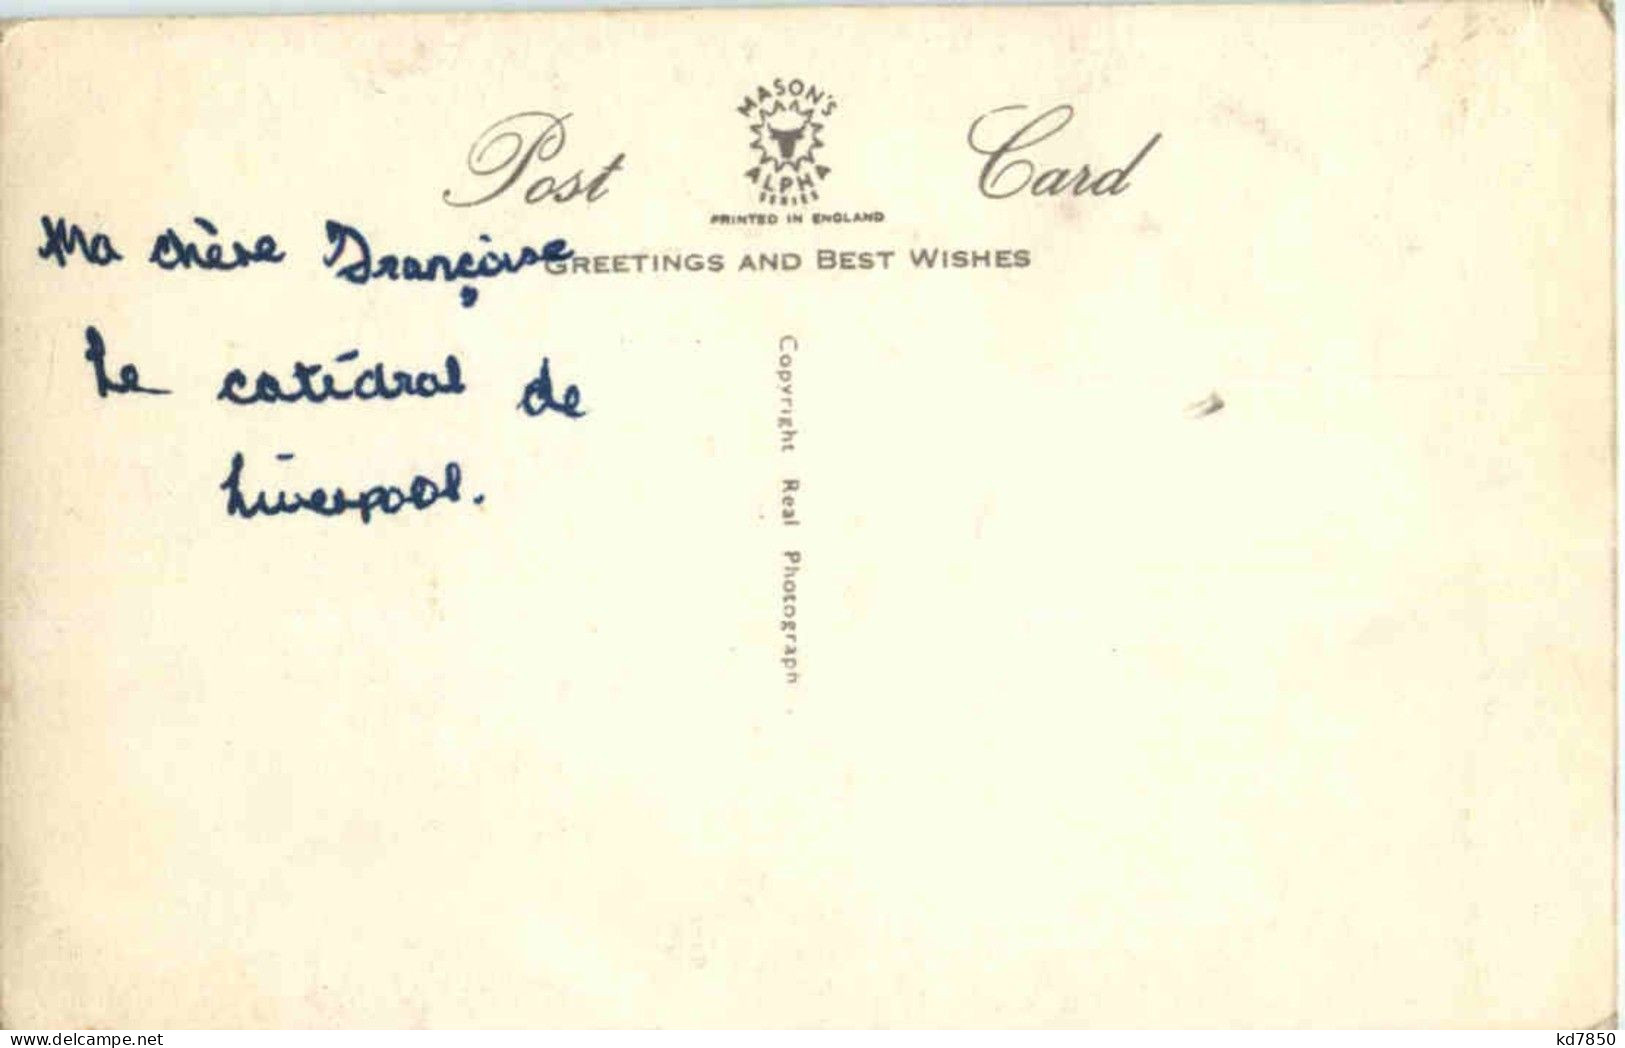 MASON'S
ALPHA
SERIES
Post Card
PRINTED IN ENGLAND
GREETINGS AND BEST WISHES
Ma chère Françoise
Le catédral de
Liverpool.
Copyright Real Photograph
kd7850